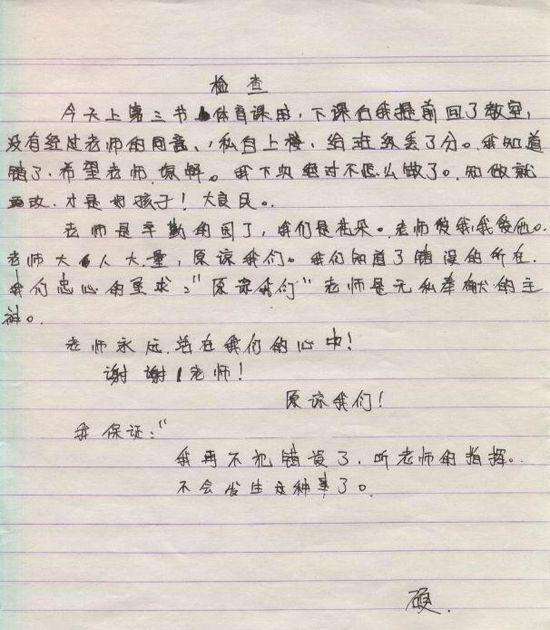 检查
今天上第三节体育课时，下课们我提前回了教室，
没有经过老师的同意，私自上楼，给班级丢了分。我知道
错了，希望老师原解。我下次绝对不怎么做了。知做就
改，才是好孩子！大良民。
老师是辛勤的园丁，我们是花朵。老师爱我，我爱他。
老师大人大量，原谅我们。我们知道了错误的所在，
我们忠心的要求：“原谅我们”老师是无私奉献的主
神。
老师永远站在我们的心中！
谢谢老师！
原谅我们！
我保证：“
我再不犯错误了，听老师的指挥。
不会发生这种事了。